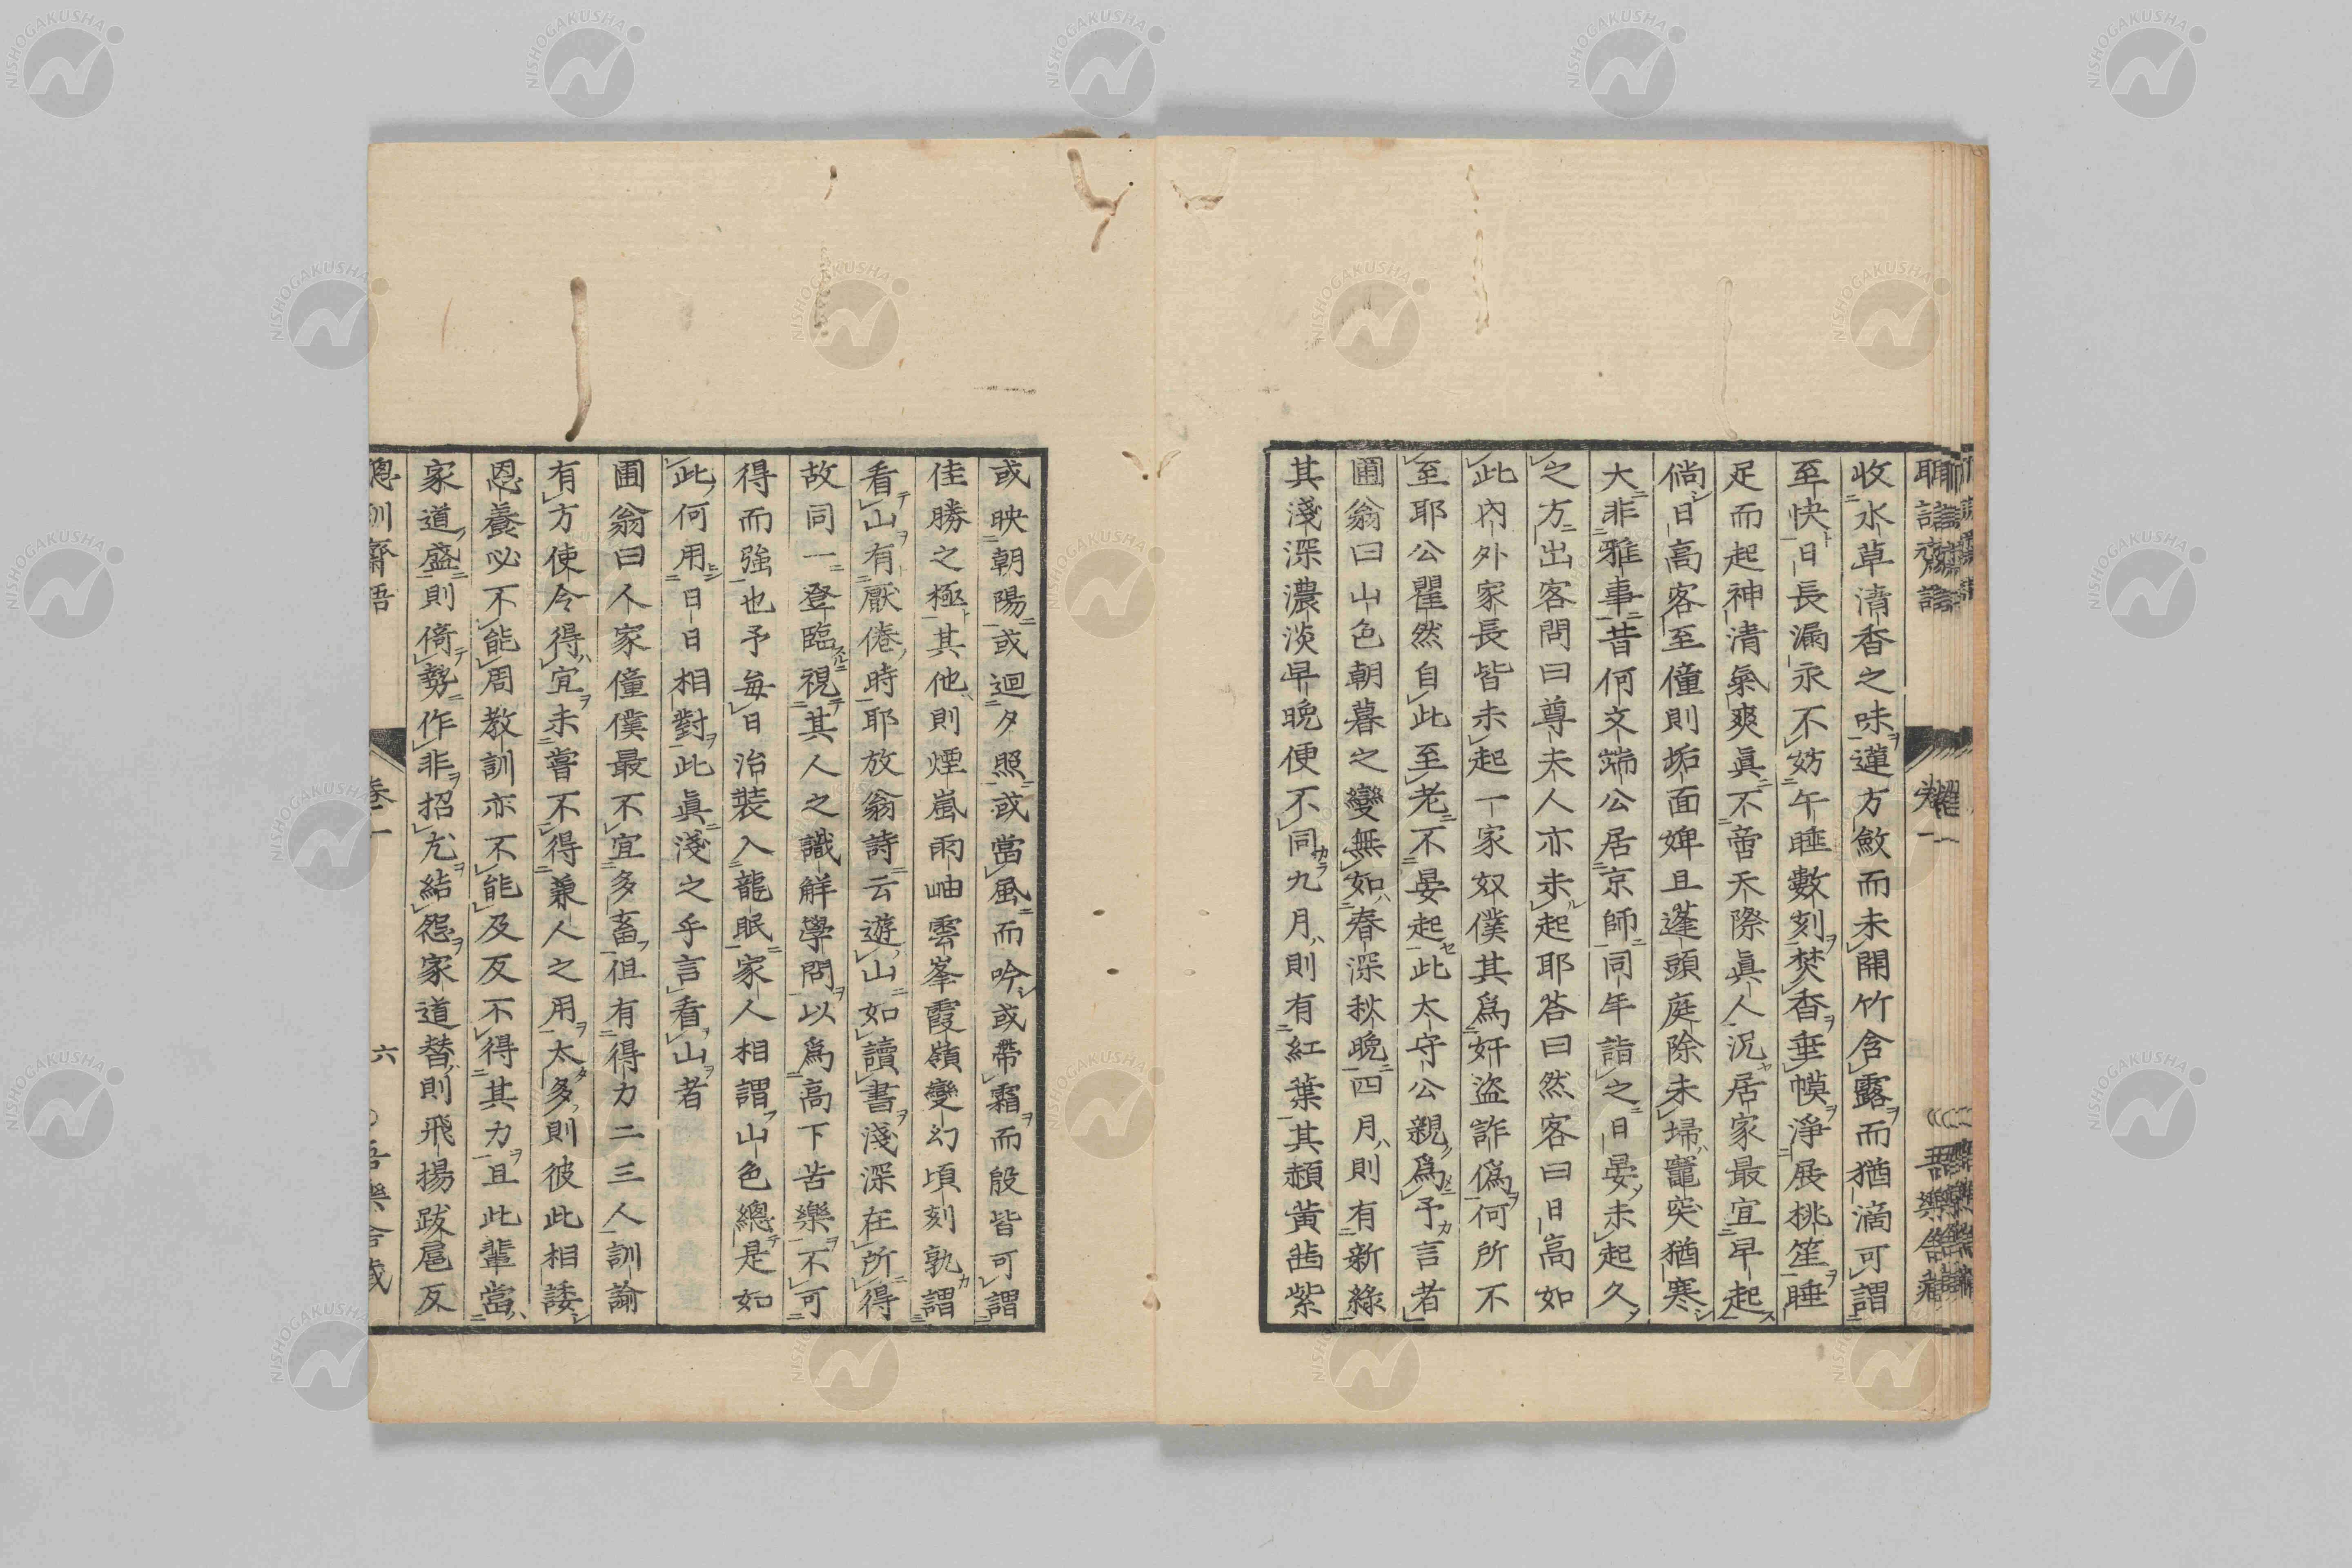 收水草清香之味蓮方斂而未開竹含露而猶滴可謂
至快日長漏永不妨午睡數刻焚香垂幙淨展桃笙睡
足而起神清氣爽眞不啻天際眞人況居家最宜早起
倘日高客至僮則垢面婢且蓬頭庭除未掃竈突猶寒
大非雅事昔何文端公居京師同年詣之日晏未起久
之方出客問曰尊夫人亦未起耶荅曰然客曰日高如
此內外家長皆未起一家奴僕其爲奸盜詐僞何所不
至耶公瞿然自此至老不晏起此太守公親爲予言者
圃翁曰山色朝暮之變無如春深秋晩四月則有新綠
其淺深濃淡早晩便不同九月則有紅葉其赬黃茜紫
或映朝陽或迴夕照或當風而吟或帶霜而殷皆可謂
佳勝之極其他則煙嵐雨岫雲峯霞嶺變幻頃刻孰謂
看山有厭倦時耶放翁詩云遊山如讀書淺深在所得
故同一登臨視其人之識解學問以爲高下苦樂不可
得而強也予每日治裝入龍眠家人相謂山色總是如
此何用日日相對此眞淺之乎言看山者
圃翁曰人家僮僕最不宜多畜但有得力二三人訓諭
有方使令得宜未嘗不得兼人之用太多則彼此相諉
恩養必不能周教訓亦不能及反不得其力且此輩當
家道盛則倚勢作非招尤結怨家道替則飛揚跋扈反
聰訓齋語 卷一 六